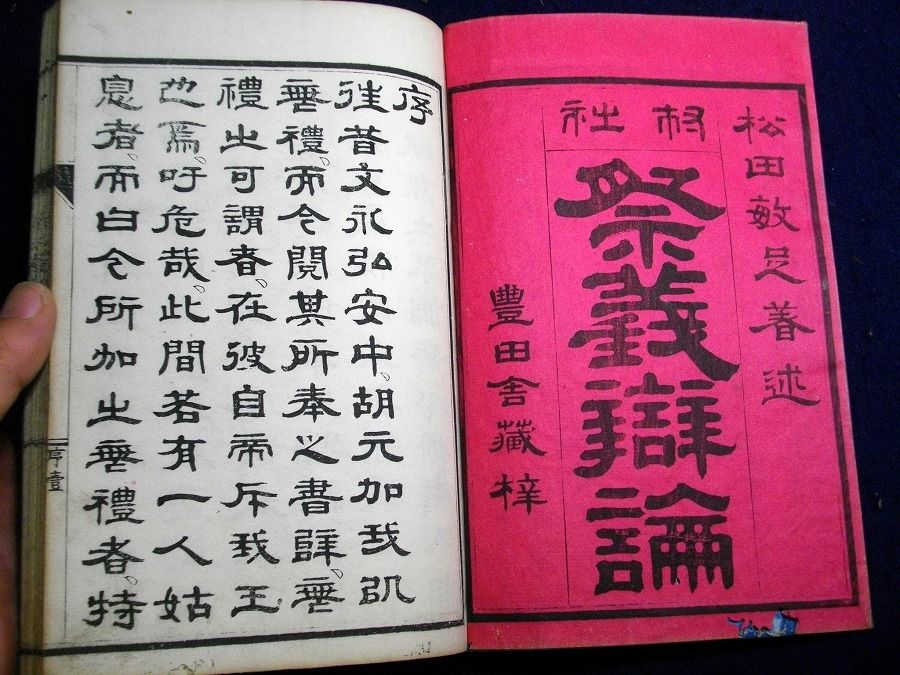 松田敏足著述
村社
祭義辯論
豐田舍藏梓
序
往昔文永弘安中、胡元加我以
無禮、而今閱其所奉之書辭、無
禮之可謂者、在彼自帝斥我王
也焉、吁危哉、此間若有一人姑
息者、而白今所加之無禮者、特
序壹